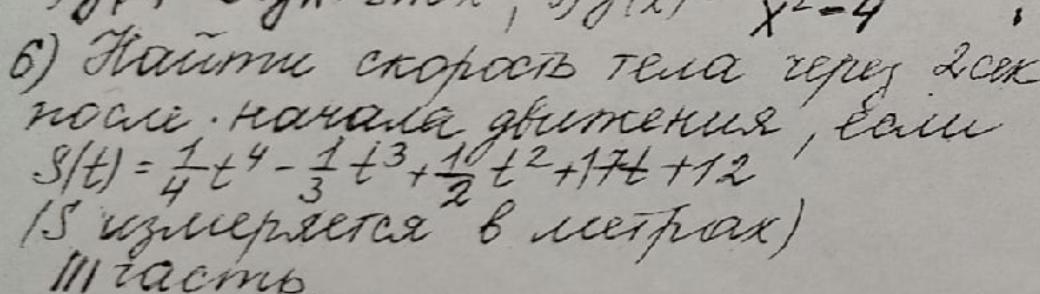 x²-4
6) Найти скорость тела через 2 сек
после начала движения, если
S(t) = 1/4 t⁴ - 1/3 t³ + 1/2 t² + 17t + 12
(S измеряется в метрах)
III часть